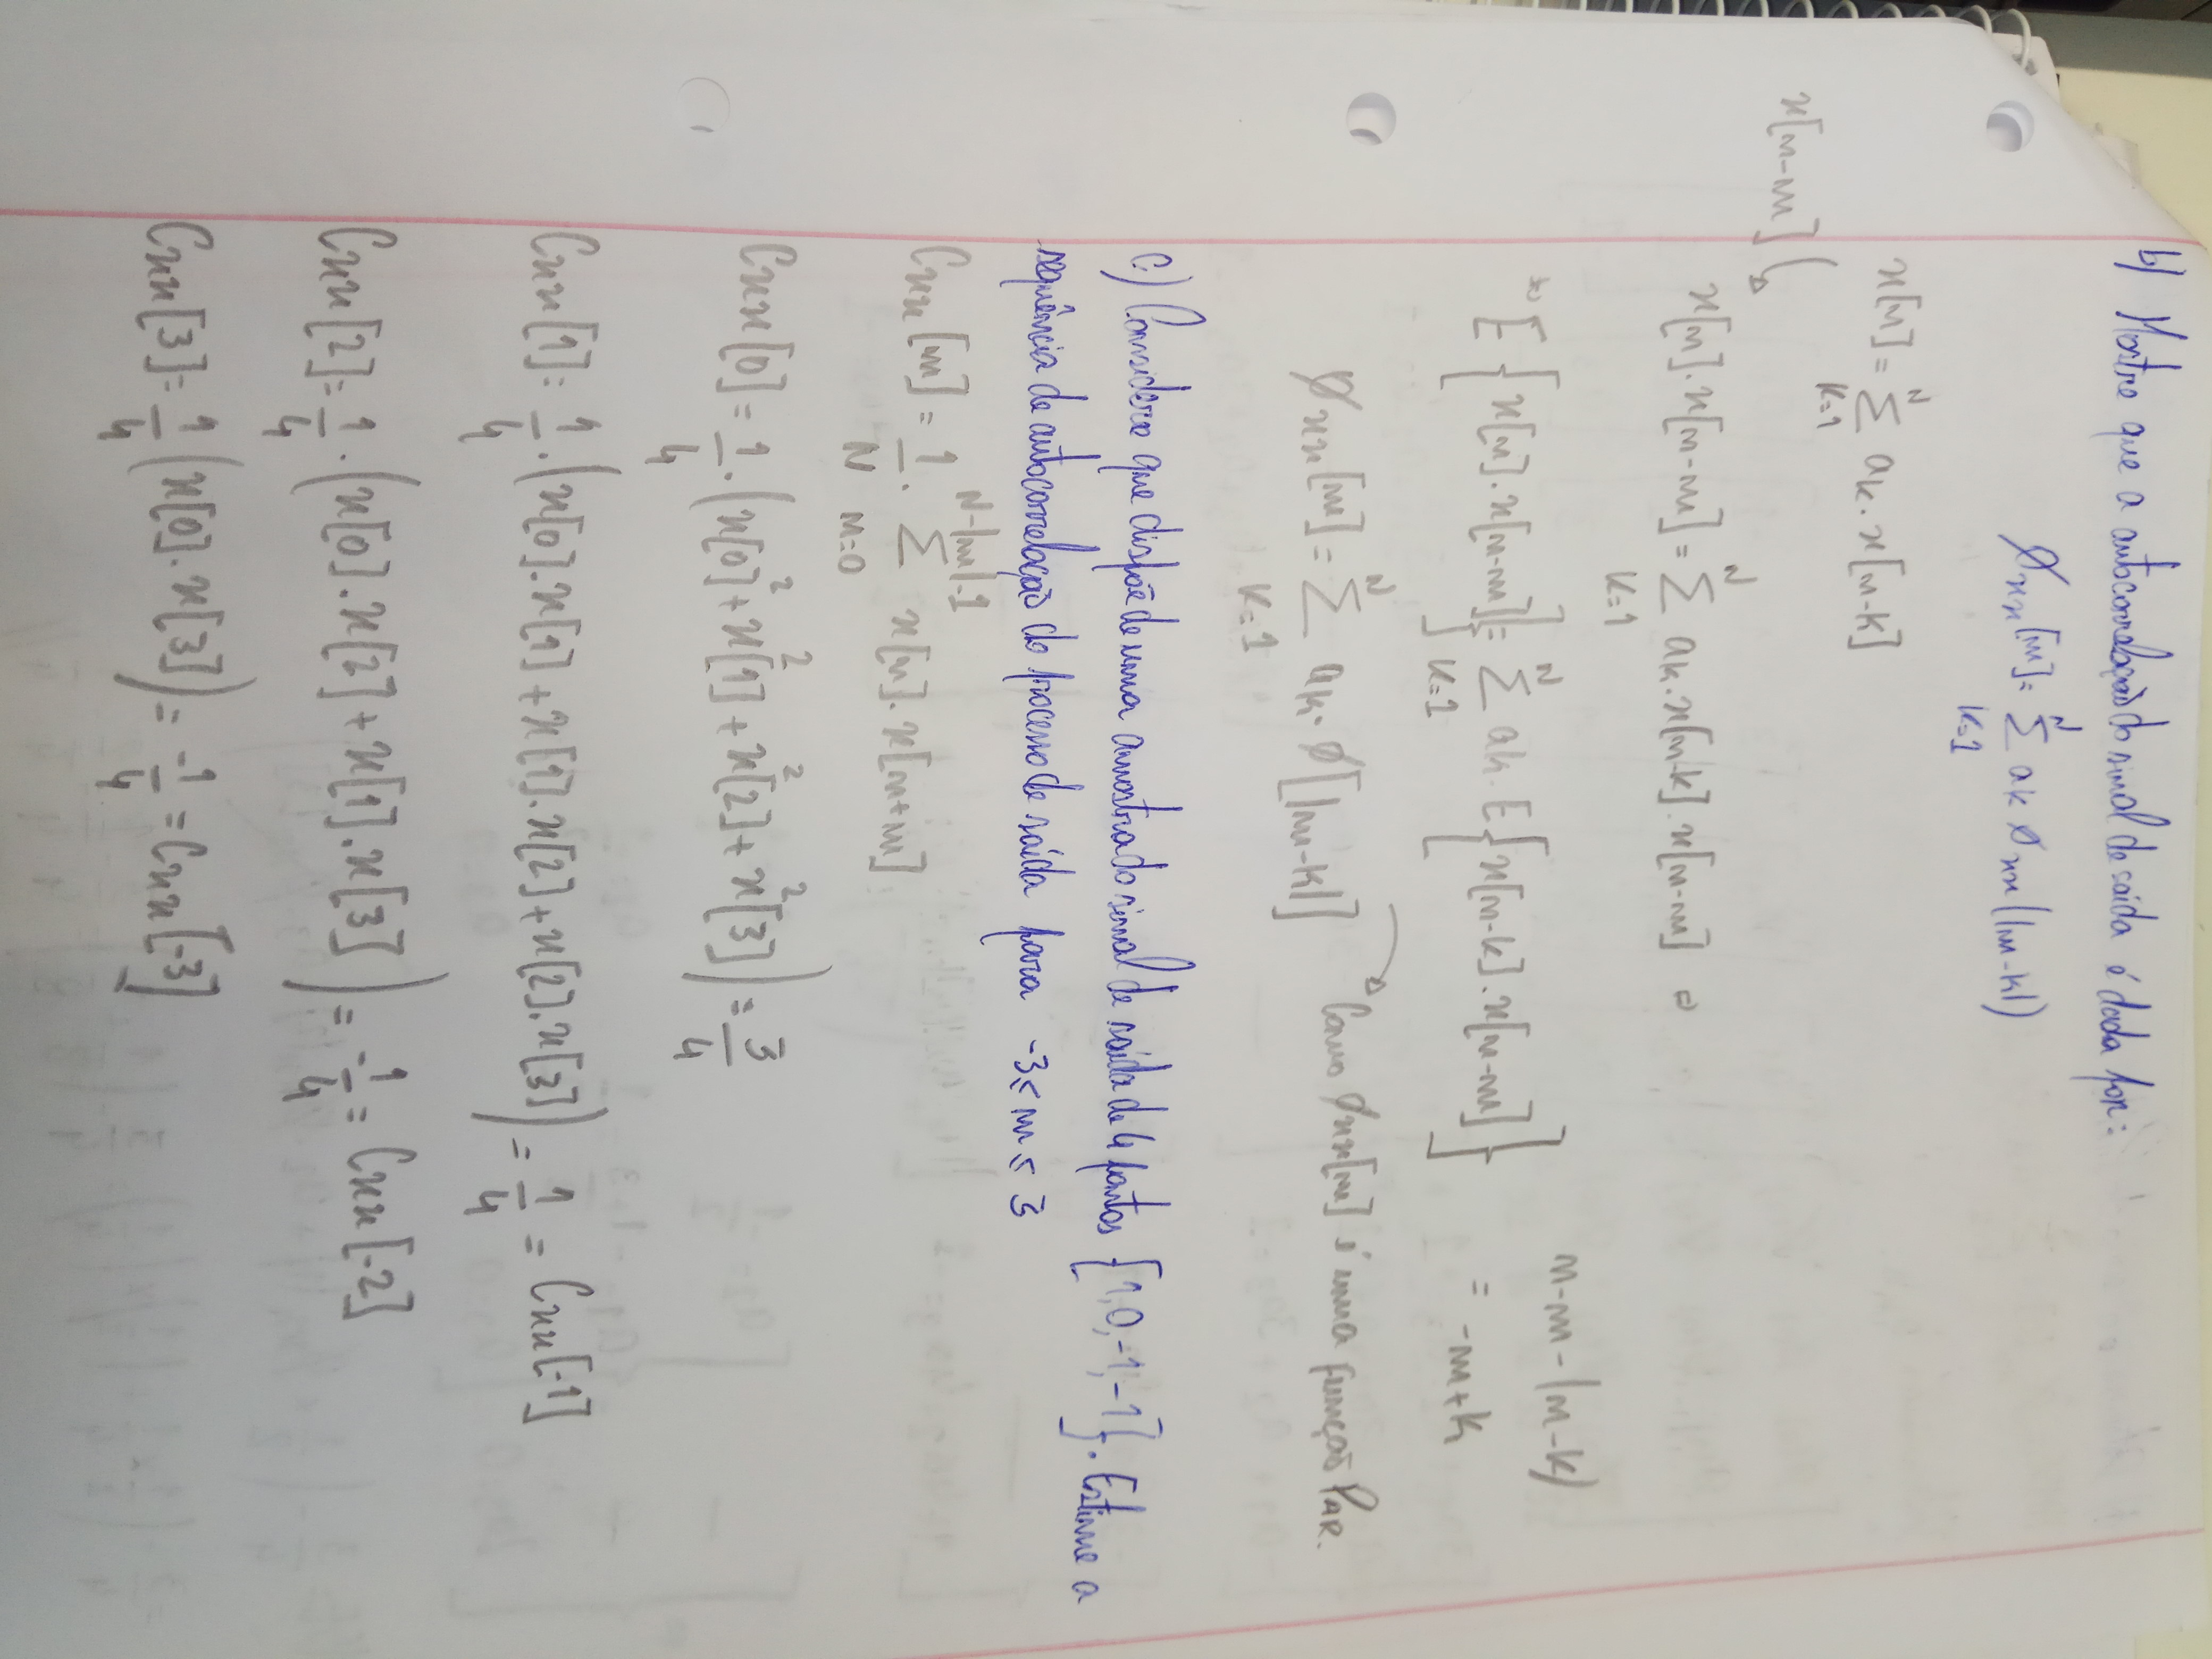 b) Mostre que a autocorrelação do sinal de saída é dada por:
ϕxx[m] = Σ_{k=1}^{N} ak ϕxx(|m-k|)
x[n] = Σ_{k=1}^{N} ak . x[n-k]
x[n-m]
x[n] . x[n-m] = Σ_{k=1}^{N} ak . x[n-k] . x[n-m] ⇔
⇔ E { x[n] . x[n-m] } = Σ_{k=1}^{N} ak . E { x[n-k] . x[n-m] }
n-m-(n-k)
= -m+k
ϕxx[m] = Σ_{k=1}^{N} ak . ϕ[|m-k|] → Como ϕxx[m] é uma função PAR.
c) Considere que dispõe de uma amostra do sinal de saída de 4 pontos {1,0,-1,-1}. Estime a
sequência de autocorrelação do processo de saída para -3 ≤ m ≤ 3
Cxx[m] = 1/N . Σ_{n=0}^{N-|m|-1} x[n] . x[n+m]
Cxx[0] = 1/4 . (x[0]² + x²[1] + x²[2] + x²[3]) = 3/4
Cxx[1] = 1/4 . (x[0] . x[1] + x[1] . x[2] + x[2] . x[3]) = 1/4 = Cxx[-1]
Cxx[2] = 1/4 . (x[0] . x[2] + x[1] . x[3]) = -1/4 = Cxx[-2]
Cxx[3] = 1/4 (x[0] . x[3]) = -1/4 = Cxx[-3]